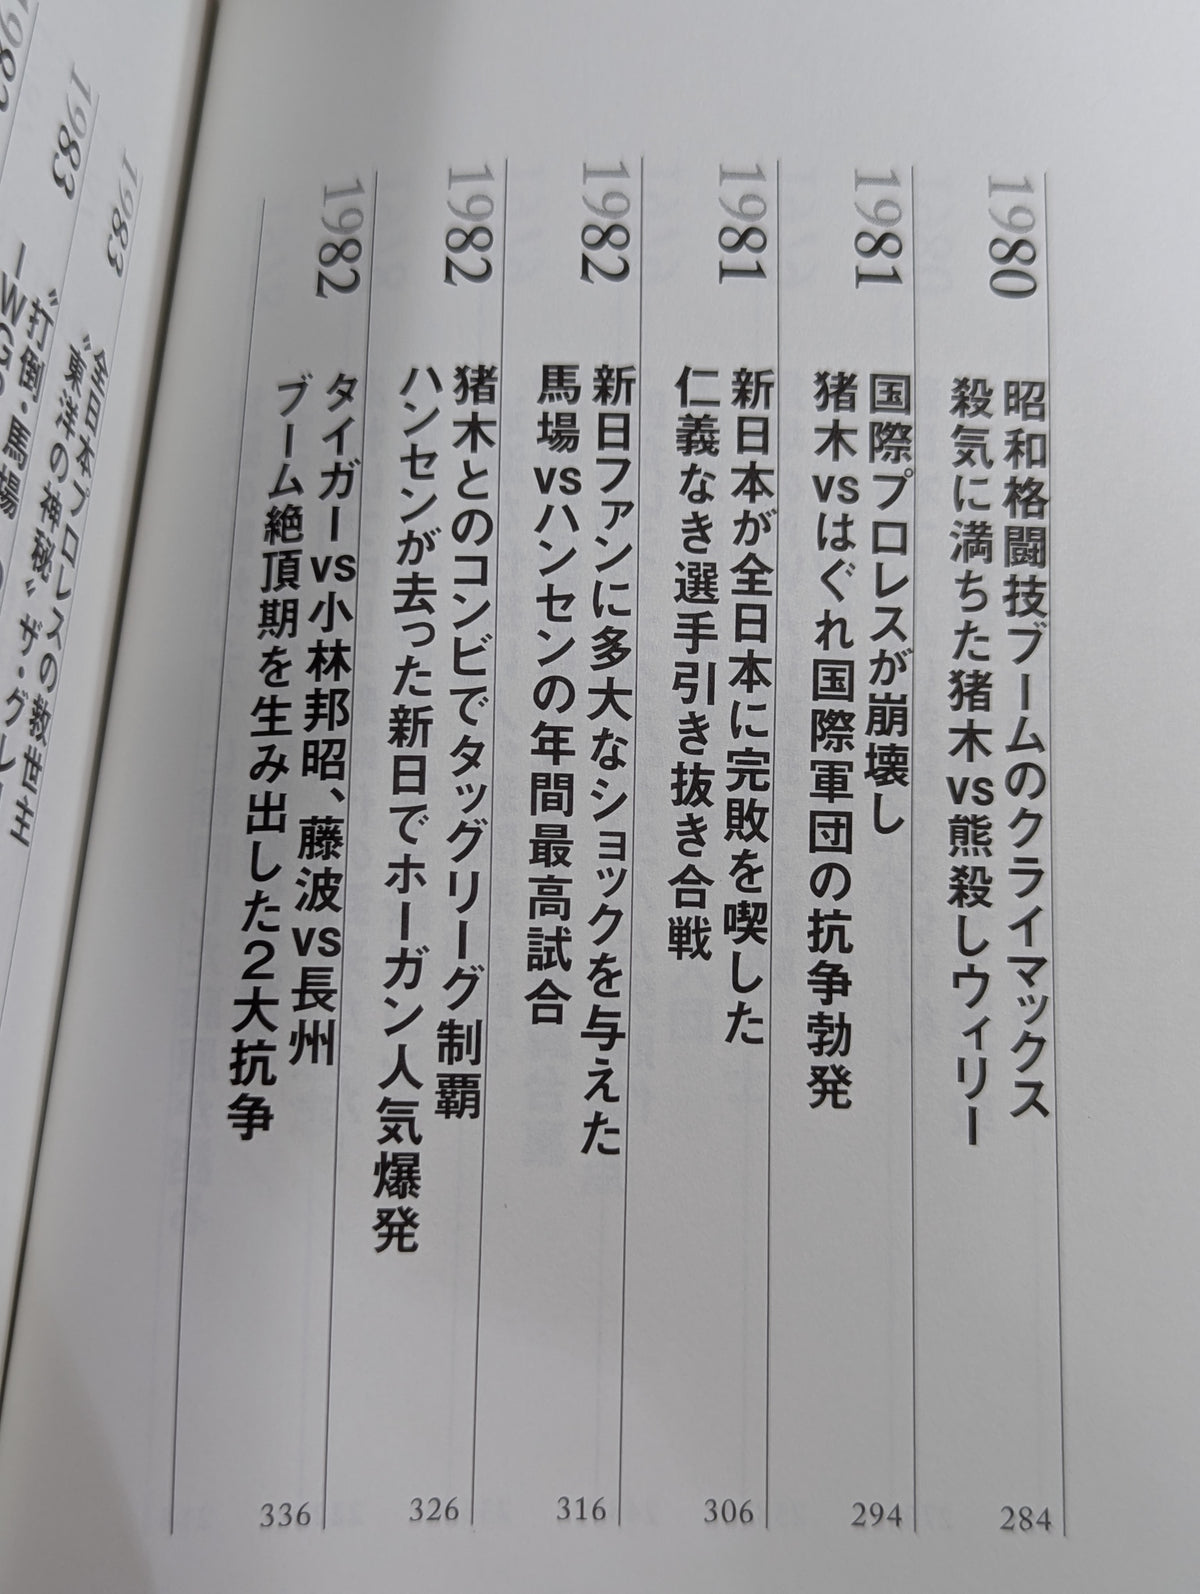 1980
昭和格闘技ブームのクライマックス
殺気に満ちた猪木vs熊殺しウィリー
284
1981
国際プロレスが崩壊し
猪木vsはぐれ国際軍団の抗争勃発
294
1981
新日本が全日本に完敗を喫した
仁義なき選手引き抜き合戦
306
1982
新日ファンに多大なショックを与えた
馬場vsハンセンの年間最高試合
316
1982
猪木とのコンビでタッグリーグ制覇
ハンセンが去った新日でホーガン人気爆発
326
1982
タイガーvs小林邦昭、藤波vs長州
ブーム絶頂期を生み出した2大抗争
336
1983
全日本プロレスの救世主
〝東洋の神秘〟ザ・グレー
1983
〝打倒・馬場
IWGP
1983